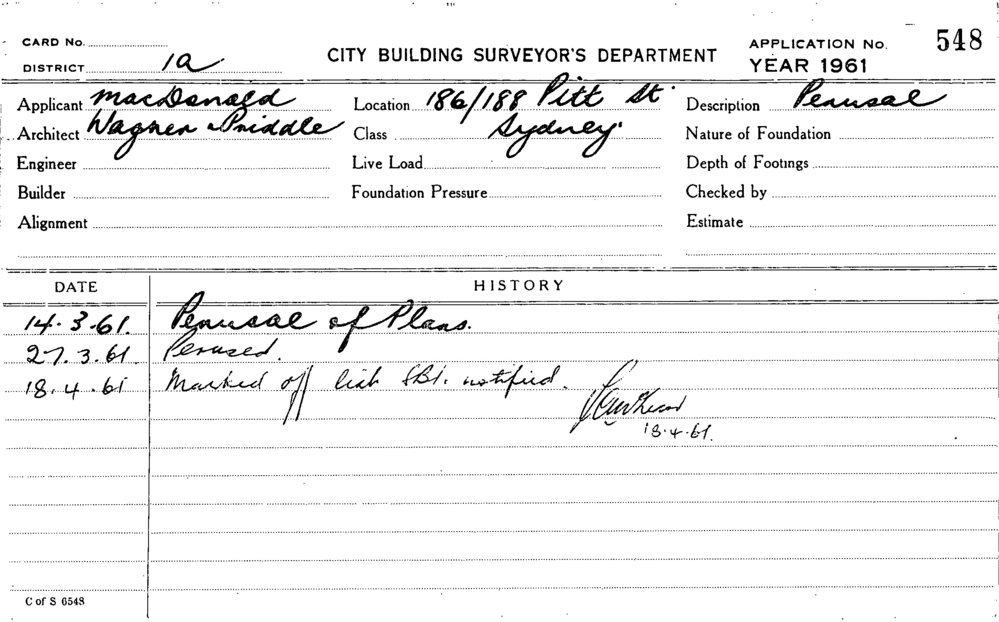 CARD No.
DISTRICT 1a
CITY BUILDING SURVEYOR'S DEPARTMENT
APPLICATION No. 548
YEAR 1961
Applicant MacDonald
Location 186/188 Pitt St.
Description Perusal
Architect Wagner & Priddle
Class Sydney.
Nature of Foundation
Engineer
Live Load
Depth of Footings
Builder
Foundation Pressure
Checked by
Alignment
Estimate
DATE HISTORY
14.3.61. Perusal of Plans.
27.3.61 Perused.
18.4.61 Marked off list notified.
18.4.61.
C of S 6548